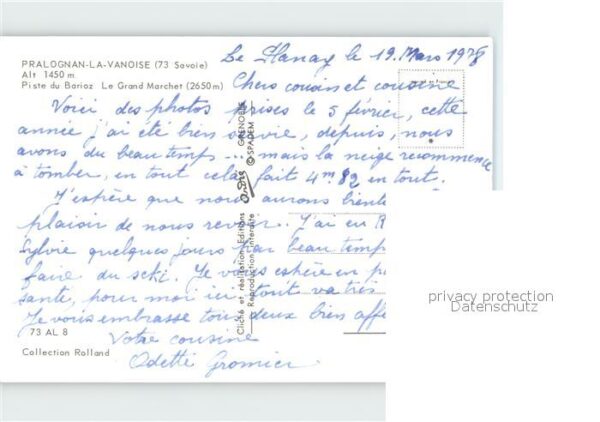 PRALOGNAN-LA-VANOISE (73 Savoie)
Alt 1450 m
Piste du Barioz Le Grand Marchet (2650m)
Le Planay le 19 Mars 1978
Chers cousin et cousine
Voici des photos prises le 5 février, cette
année j'ai été bien servie, depuis, nous
avons du beau temps... mais la neige recommence
à tomber, en tout cela fait 4m82 en tout.
J'espère que nous aurons
plaisir de nous revoir. J'ai eu
Sylvie quelques jours par beau temps
faire du ski. Je vous espère en
santé, pour moi ici tout va très
Je vous embrasse tous deux bien
Votre cousine
Odette Gromier
73 AL 8
Collection Rolland
Cliché et réalisation Editions GRENOBLE
Reproduction Interdite © SPADEM
privacy protection
Datenschutz